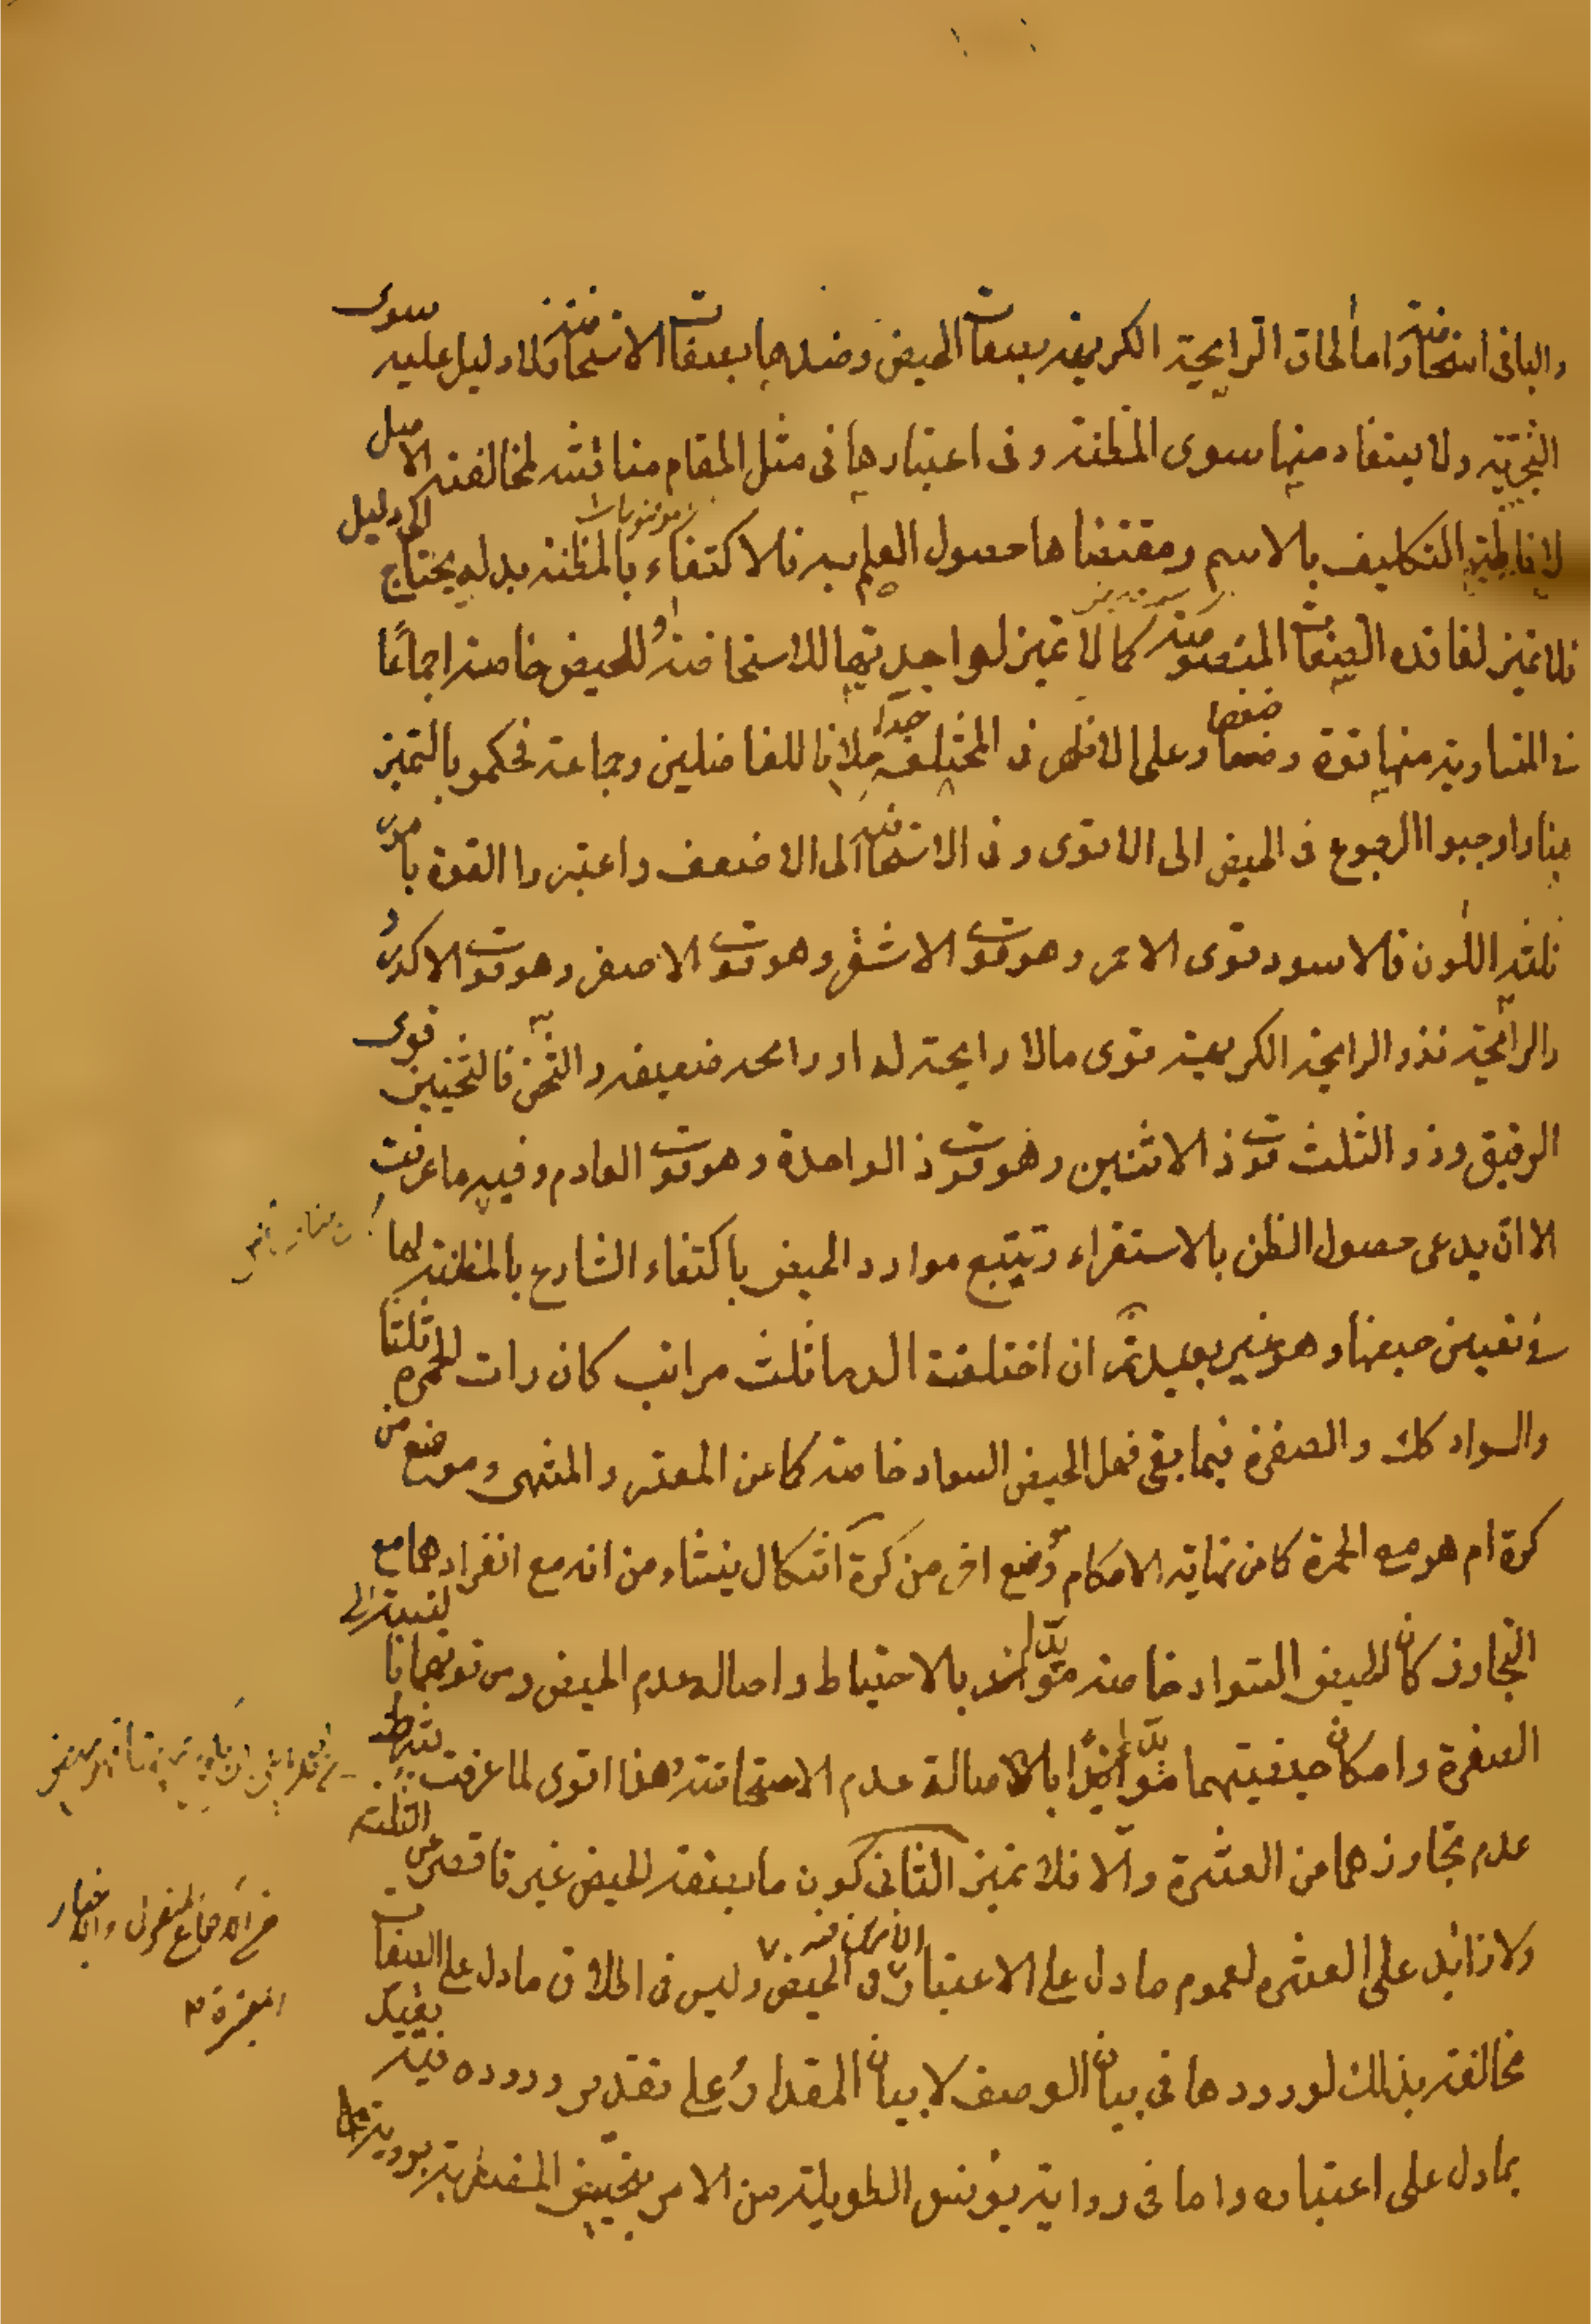 والباقي استحاضة واما الحاق الرايحة الكريهة بصفات الحيض وضدها بصفات الاستحاضة فلا دليل عليه سوى
التجربة ولا يستفاد منها سوى المظنة وفى اعتبارها فى مثل المقام مناقشة لمخالفته الاصل
لاناطة التكليف بالاسم ومقتضاها حصول العلم به فالاكتفاء بالمظنة بدله يحتاج الى دليل
فلا تميز لفاقده الصفات المنصوصة كما لا تميز لواجدتها للاستحاضة او للحيض خاصة اجماعًا
فى المتساوية منها قوة وضعفا وعلى الاظهر فى المختلفة جدا خلافا للفاضلين وجماعة فحكموا بالتميز
هنا واوجبوا الرجوع فى الحيض الى الاقوى وفى الاستحاضة الى الاضعف واعتبروا القوة بامور
ثلثة اللون فالاسود قوى الاحمر وهو قوى الاشقر وهو قوى الاصفر وهو قوى الاكدر و
والرايحة فذو الرايحة الكريهة قوى مالا رايحة له او رايحه ضعيفه والثخن فالثخين قوى
الرقيق وذو الثلث قوى ذى الاثنين وهو قوى ذى الواحدة وهو قوى العادم وفيه ما عرفت
الا ان يدعى حصول الظن بالاستقراء وتتبع موارد الحيض باكتفاء الشارع بالمظنة لها
فى تعيين حيضها وهو غير بعيد ثم ان اختلفت الدماء ثلث مراتب كان رات الحمرة ثلثا
والسواد كك والصفرة فيما بقى فهل الحيض السواد خاصة كما عن المعتبر والمنتهى وموضع من
كرة ام هو مع الحمرة كما من نهاية الاحكام وموضع اخر من كرة اشكال ينشاء من انه مع انفرادهما مع
التجاوز كان الحيض السواد خاصة مؤيدا بالاحتياط واصالة عدم الحيض ومن قوتهما بالنسبة الى
الصفرة وامكان حيضيتهما مؤيدا بالاصالة عدم الاستحاضة وهذا اقوى لما عرفت بشرط
عدم تجاوزهما من العشرة والا فلا تميز الثانى كون ما بصفة الحيض غير ناقص عن الثلثة
ولا زائد على العشره لعموم ما دل على الاعتبار فى الحيض وليس فى اطلاق ما دل على الصفات
مخالفة بذلك لورودها فى بيان الوصف لا بيان المقدار وعلى تقدير وروده فيه يقيد
بما دل على اعتباره واما فى رواية يونس الطويلة من الامر بتحيض المضطربة
من الاجماع المنقول والاخبار
المعتبرة